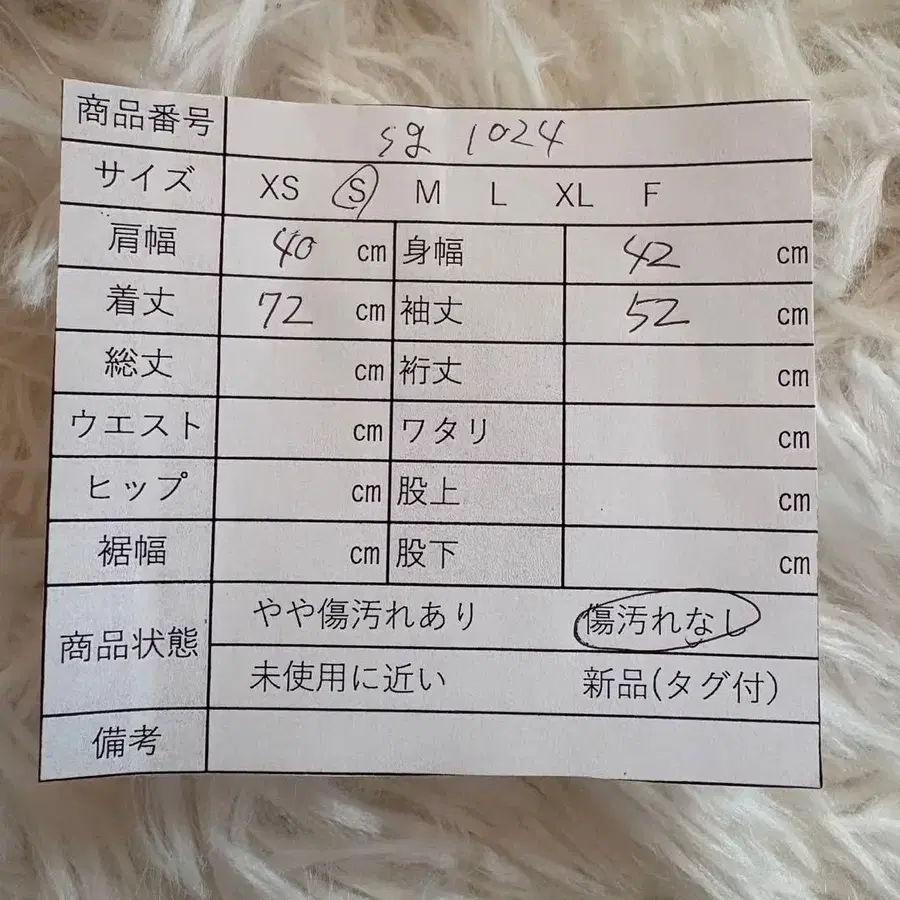 商品番号 sg 1024
サイズ XS S M L XL F
肩幅 40 cm 身幅 42 cm
着丈 72 cm 袖丈 52 cm
総丈 cm 裄丈 cm
ウエスト cm ワタリ cm
ヒップ cm 股上 cm
裾幅 cm 股下 cm
商品状態 やや傷汚れあり 傷汚れなし
未使用に近い 新品(タグ付)
備考